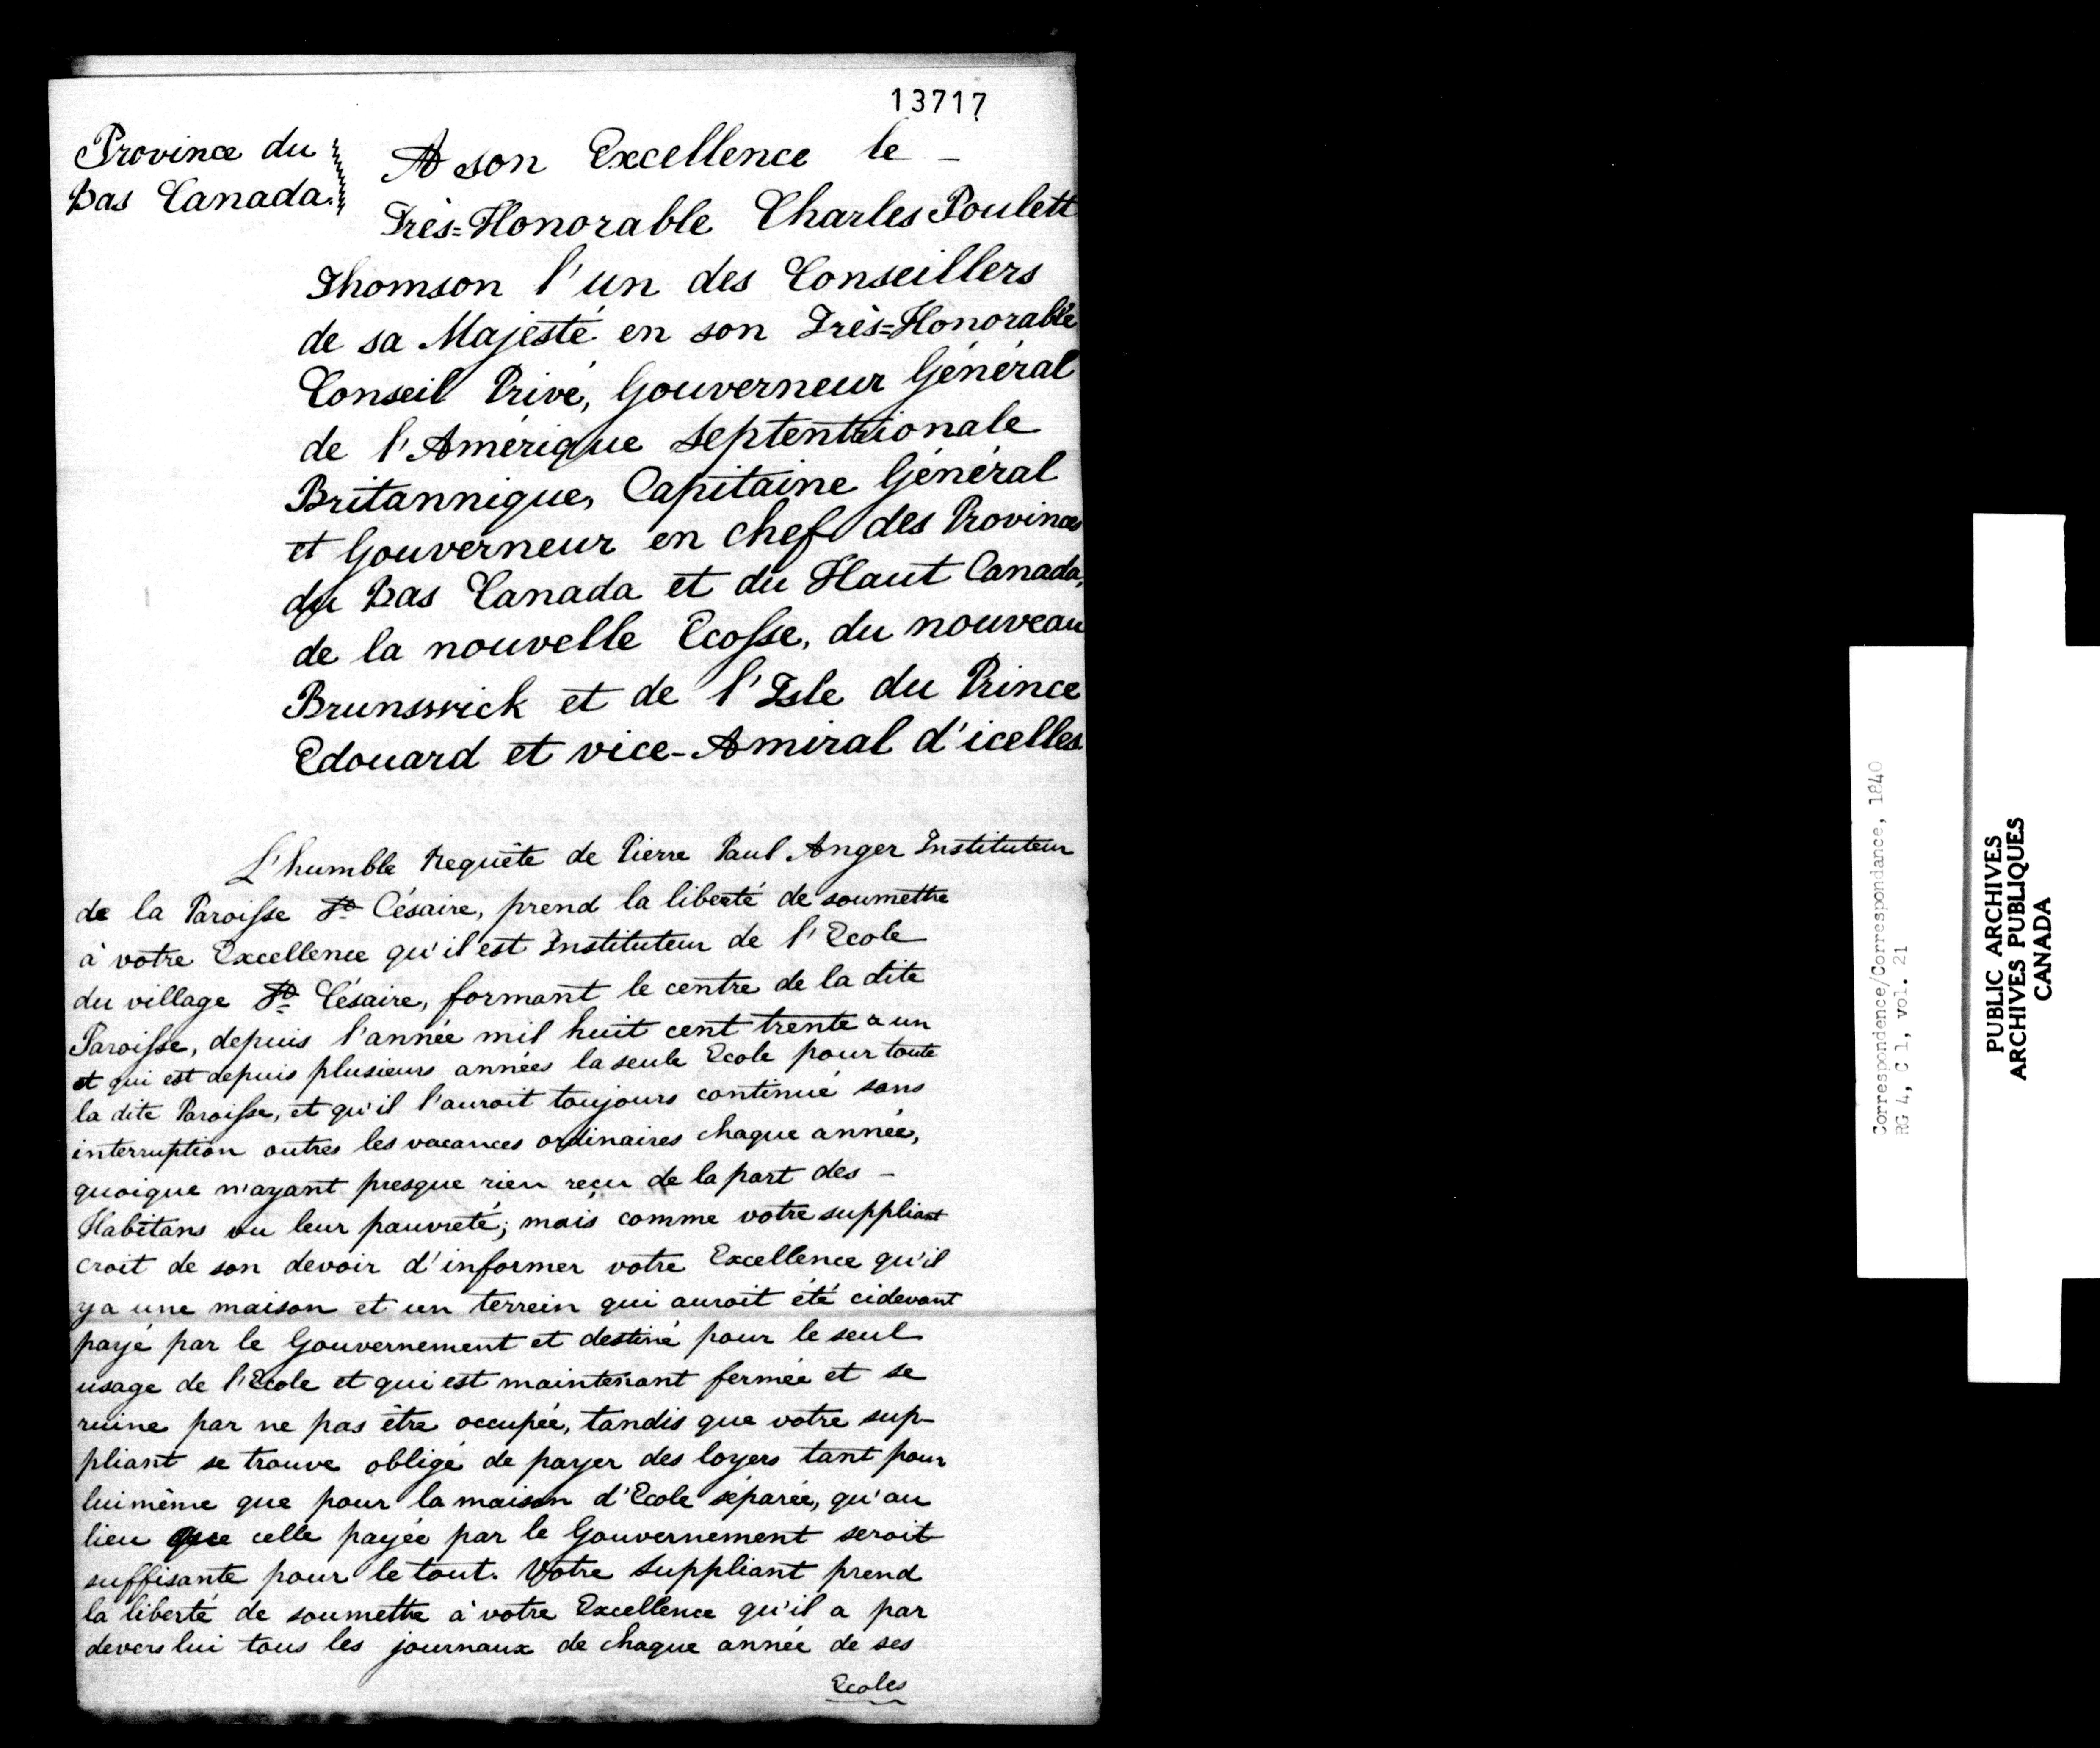 13717
Province du
Bas Canada.
A son Excellence le –
Très=Honorable Charles Poulett
Thomson l'un des Conseillers
de sa Majesté en son Très=Honorable
Conseil Privé, Gouverneur Général
de l'Amérique Septentrionale
Britannique, Capitaine Général
et Gouverneur en chef des Provinces
du Bas Canada et du Haut Canada,
de la nouvelle Ecosse, du nouveau
Brunswick et de l'Isle du Prince
Edouard et vice-Amiral d'icelles
L'humble Requête de Pierre Paul Anger Instituteur
de la Paroisse St. Césaire, prend la liberté de soumettre
à votre Excellence qu'il est Instituteur de l'Ecole
du village St. Césaire, formant le centre de la dite
Paroisse, depuis l'année mil huit cent trente & un
et qui est depuis plusieurs années la seule Ecole pour toute
la dite Paroisse, et qu'il l'auroit toujours continué sans
interruption outres les vacances ordinaires chaque année,
quoique n'ayant presque rien reçu de la part des –
Habitans vu leur pauvreté; mais comme votre suppliant
croit de son devoir d'informer votre Excellence qu'il
y a une maison et un terrein qui auroit été cidevant
payé par le Gouvernement et destiné pour le seul
usage de l'Ecole et qui est maintenant fermée et se
ruine par ne pas être occupée, tandis que votre sup-
pliant se trouve obligé de payer des loyers tant pour
luimême que pour la maison d'Ecole séparée, qu'au
lieu que celle payée par le Gouvernement seroit
suffisante pour le tout. Votre Suppliant prend
la liberté de soumettre à votre Excellence qu'il a par
devers lui tous les journaux de chaque année de ses
Ecoles
Correspondence/Correspondance, 1840
RG 4, C 1, vol. 21
PUBLIC ARCHIVES
ARCHIVES PUBLIQUES
CANADA